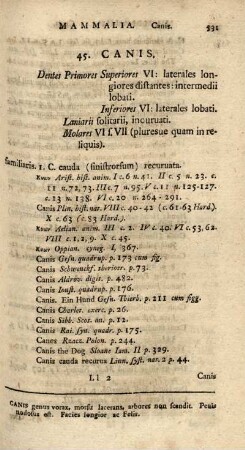 MAMMALIA. Canis. 531
45. CANIS.
Dentes Primores Superiores VI: laterales lon-
giores distantes: intermedii
lobati.
Inferiores VI: laterales lobati.
Laniarii solitarii, incuruati.
Molares VI s. VII (pluresue quam in re-
liquis).
familiaris. 1. C. cauda (sinistrorsum) recuruata.
Arist. hist. anim. I c. 6 n. 41. II c. 5 n. 23. c.
11 n. 72, 73. III c. 7 n. 95. V c. 11 n. 125-127.
c. 13 n. 138. VI c. 20 n. 264 - 267.
Canis Plin. hist. nat. VIII c. 40 - 42 (c. 61-63 Hard.)
X c. 63 (c. 83 Hard.)
Aelian. anim. III c. 2. IV c. 40. VI c. 53, 62.
VIII c. 1, 2, 9. X c. 45.
Oppian. cyneg. I, 367.
Canis Gesn. quadr. p. 173 cum fig.
Canis Schwenckf. theriotr. p. 73.
Canis Aldrov. digit. p. 482.
Canis Ionst. quadr. p. 176.
Canis. Ein Hund Gesn. Thierb. p. 211 cum figg.
Canis Charlet. exerc. p. 26.
Canis Sibb. Scot. an. p. 12.
Canis Rai. syn. quadr. p. 175.
Canes Rzacz. Polon. p. 244.
Canis the Dog Sloane Iam. II p. 329.
Canis cauda recurua Linn. syst. nat. 2 p. 44.
Ll 2 Canis
CANIS genus vorax, morsu lacerans, arbores non scandit. Penis
nodosus est. Facies longior ac Felis.